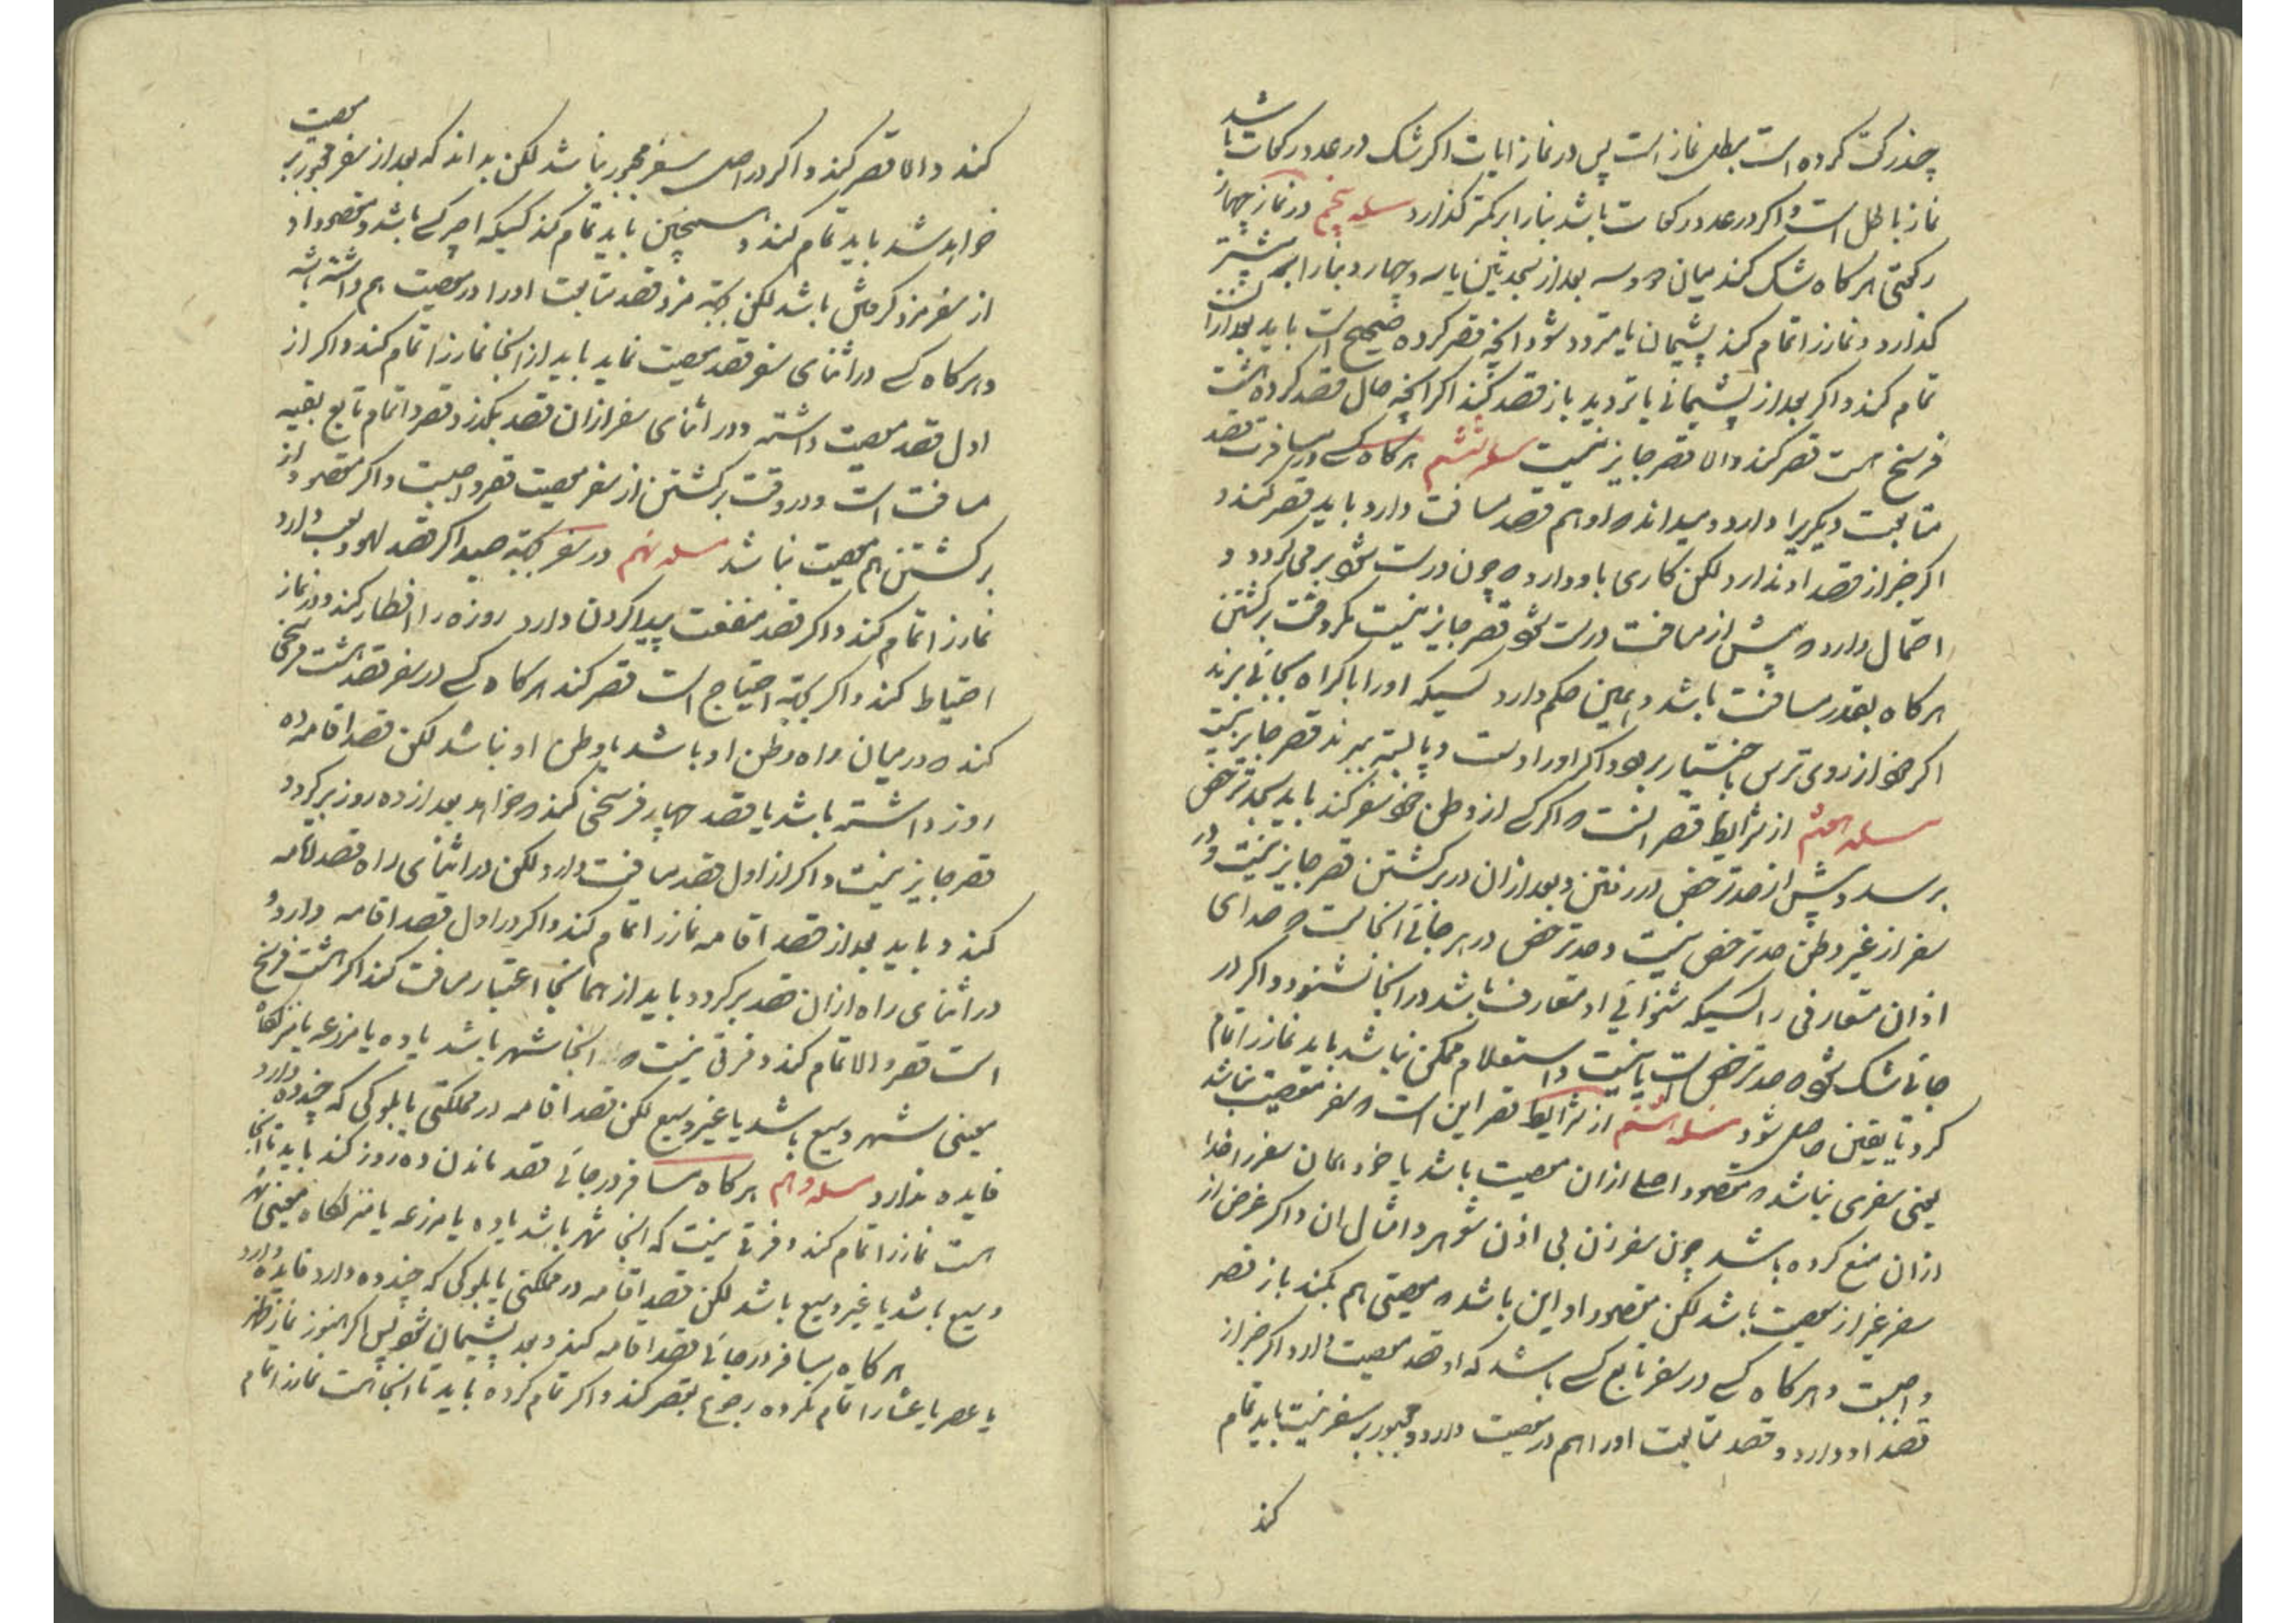 چند رکعت کرده است مبطل نماز است پس در نماز ایات اگر شک در عدد رکعات باشد
نماز باطل است و اگر در عدد رکعات باشد بنا را بر کمتر گذارد مسله پنجم در نماز چهار
رکعتی هر کاه شک کند میان دو و سه بعد از سجدتین یا سه و چهار و بنا را بر بیشتر
گذارد و نماز را تمام کند پشیمان یا متردد شود انچه قصر کرده صحیح است باید بعد از ان
تمام کند و اکر بعد از پشیمانی یا تردید باز قصد کند اکر انچه حال قصد کرده هشت
فرسخ است قصر کند والا قصر جایز نیست مسله ششم هر کاه کسی در مسافرت قصد
متابعت دیکریرا دارد و میداند که او هم قصد مسافت دارد باید قصر کند و
اکر خبر از قصد او ندارد لکن کاری باو دارد که چون درست شود بر می کردد و
احتمال دارد که پیش از مسافت درست شود قصر جایز نیست مکر وقت برکشتن
هر کاه بقدر مسافت باشد و همین حکم دارد کسیکه او را باکراه بجائی برند
اکر خود از روی ترس باختیار برود و اکر او را دست و پا بسته ببرند قصر جایز نیست
مسله هفتم از شرایط قصر انست که اکر کسی از وطن خود سفر کند باید بحد ترخص
برسد و پیش از حد ترخص در رفتن و بعد از ان در برکشتن قصر جایز نیست و در
سفر از غیر وطن حد ترخص نیست و حد ترخص در هر جائی انجاست که صدای
اذان متعارفی را کسیکه شنوائی او متعارف باشد در انجا نشنود و اکر در
جائی شک شود که حد ترخص است یا نیست و استعلام ممکن نباشد باید نماز را تمام
کرد تا یقین حاصل شود مسله هشتم از شرایط قصر این است که سفر معصیت نباشد
یعنی سفری نباشد که مقصود اصلی از ان معصیت باشد یا خود همان سفر را خدا
از ان منع کرده باشد چون سفر زن بی اذن شوهر و امثال ان و اکر غرض از
سفر غیر از معصیت باشد لکن مقصود او این باشد که معصیتی هم بکند باز قصر
واجبست و هر کاه کسی در سفر تابع کسی باشد که او قصد معصیت دارد اکر خبر از
قصد او دارد و قصد متابعت او را هم در معصیت دارد و مجبور بر سفر نیست باید تمام
کند
کند والا قصر کند و اکر در اصل سفر مجبور نباشد لکن بداند که بعد از سفر مجبور بر معصیت
خواهد شد باید تمام کند و همچنین باید تمام کند کسیکه اجیر کسی باشد و مقصود او
از سفر مزد کرفتن باشد لکن بجهة مزد قصد متابعت او را در معصیت هم داشته باشد
و هر کاه کسی در اثنای سفر قصد معصیت نماید باید از انجا نماز را تمام کند و اکر از
اول قصد معصیت داشته و در اثنای سفر از ان قصد بکذرد قصر و اتمام تابع بقیه
مسافت است و در وقت برکشتن از سفر معصیت قصر واجبست و اکر مقصود از
برکشتن هم معصیت نباشد مسله نهم در سفر بجهة صید اکر قصد لهو و لعب دارد
نماز را تمام کند و اکر قصد منفعت پیدا کردن دارد روزه را افطار کند و در نماز
احتیاط کند و اکر بجهة احتیاج است قصر کند هر کاه کسی در سفر قصد هشت فرسخی
کند که در میان راه وطن او باشد یا وطن او نباشد لکن قصد اقامه ده
روز داشته باشد یا قصد چهار فرسخی کند که خواهد بعد از ده روز برکردد
قصر جایز نیست و اکر از اول قصد مسافت دارد لکن در اثنای راه قصد اقامه
کند و باید بعد از قصد اقامه نماز را تمام کند و اکر در اول قصد اقامه دارد و
در اثنای راه از ان قصد برکردد باید از همانجا اعتبار مسافت کند اکر هشت فرسخ
است قصر والا تمام کند و فرقی نیست که انجا شهر باشد یا ده یا مزرعه یا منزلکاه
معینی شهر وسیع باشد یا غیر وسیع لکن قصد اقامه در مملکتی یا بلوکی که چند ده دارد
فایده ندارد مسله دهم هر کاه مسافر در جائی قصد ماندن ده روز کند باید تا انجا
است نماز را تمام کند و فرقی نیست که انجا شهر باشد یا ده یا مزرعه یا منزلکاه معینی شهر
وسیع باشد یا غیر وسیع باشد لکن قصد اقامه در مملکتی یا بلوکی که چند ده دارد فایده ندارد
هر کاه مسافر در جائی قصد اقامه کند و بعد پشیمان شود پس اکر هنوز نماز ظهر
یا عصر یا عشا را تمام نکرده رجوع بقصر کند و اکر تمام کرده باید تا انجا هست نماز را تمام